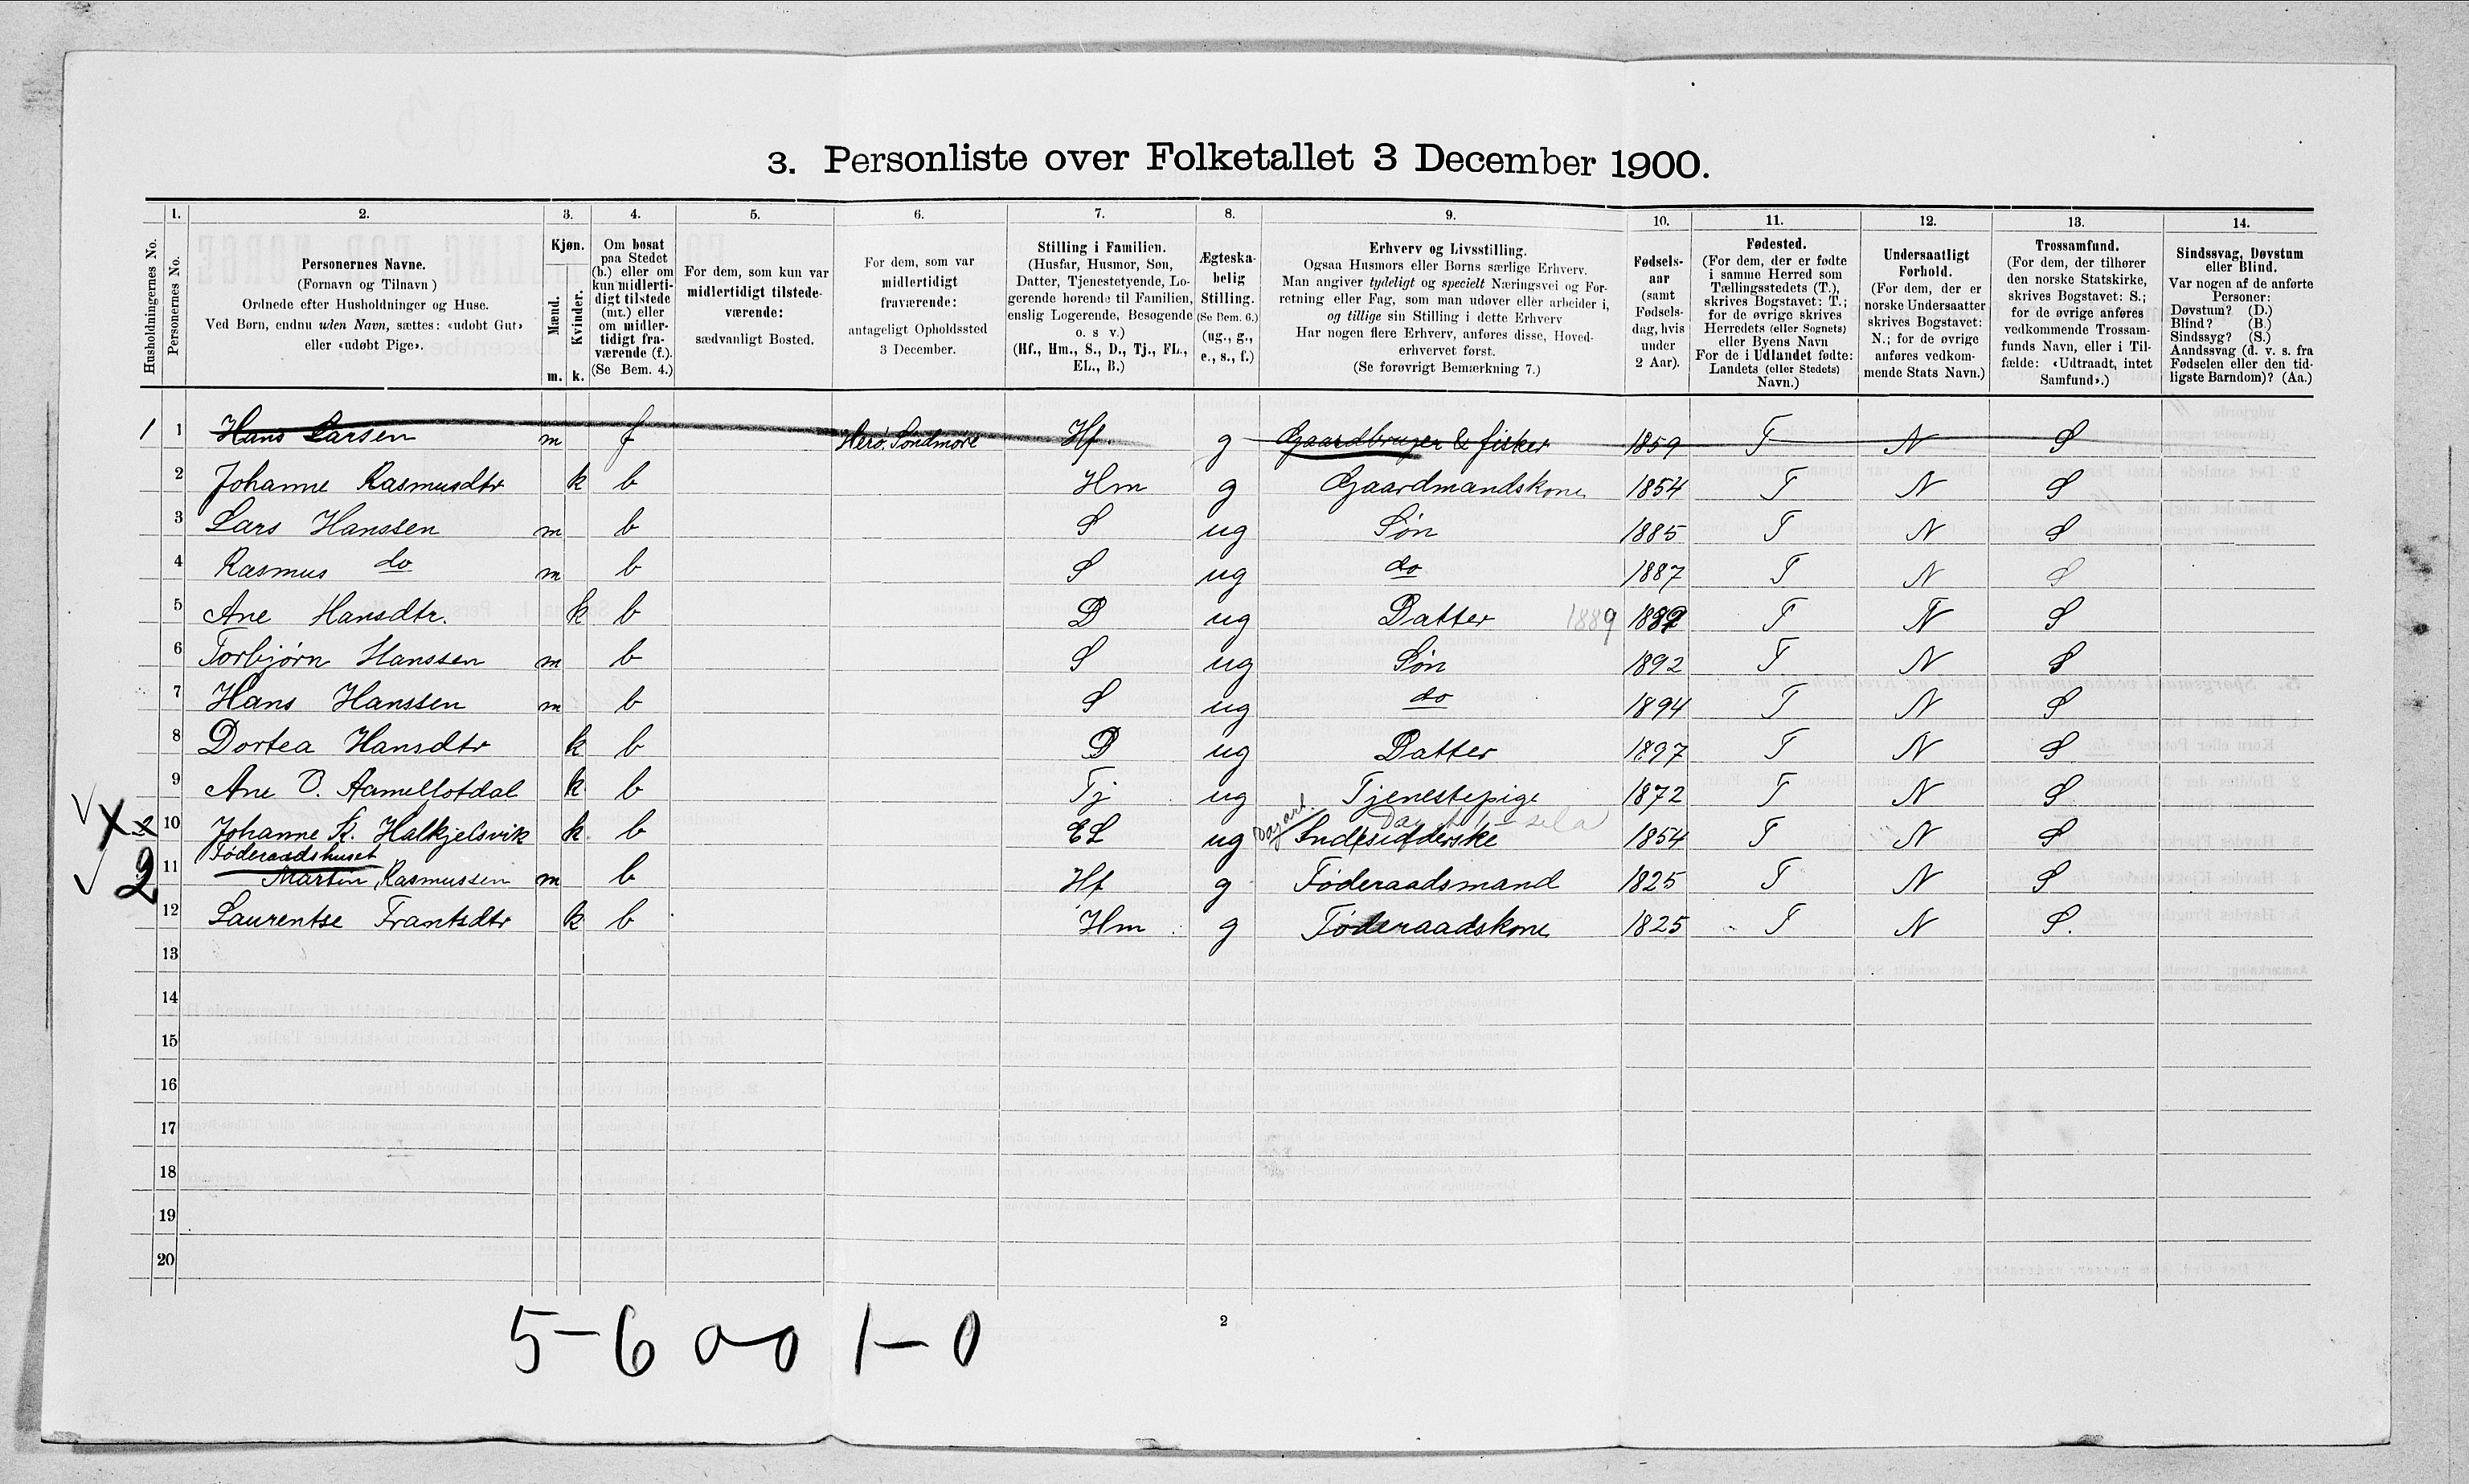 3. Personliste over Folketallet 3 December 1900.
1. 2. 3. 4. 5. 6. 7. 8. 9. 10. 11. 12. 13. 14.
Husholdningernes No.
Personernes No.
Personernes Navne.
(Fornavn og Tilnavn)
Ordnede efter Husholdninger og Huse.
Ved Børn, endnu uden Navn, sættes: «udøbt Gut»
eller «udøbt Pige».
Kjøn.
Mænd.
Kvinder.
m. k.
Om bosat
paa Stedet
(b.) eller om
kun midlerti-
digt tilstede
(mt.) eller
om midler-
tidigt fra-
værende (f.).
(Se Bem. 4.)
For dem, som kun var
midlertidigt tilstede-
værende:
sædvanligt Bosted.
For dem, som var
midlertidigt
fraværende:
antageligt Opholdssted
3 December.
Stilling i Familien.
(Husfar, Husmor, Søn,
Datter, Tjenestetyende, Lo-
gerende hørende til Familien,
enslig Logerende, Besøgende
o. s v.)
(Hf., Hm., S., D., Tj., FL.,
EL., B.)
Ægteska-
belig
Stilling.
(Se Bem. 6.)
(ug., g.,
e., s., f.)
Erhverv og Livsstilling.
Ogsaa Husmors eller Børns særlige Erhverv.
Man angiver tydeligt og specielt Næringsvei og For-
retning eller Fag, som man udover eller arbeider i,
og tillige sin Stilling i dette Erhverv
Har nogen flere Erhverv, anføres disse, Hoved-
erhvervet først.
(Se forøvrigt Bemærkning 7.)
Fødsels-
aar
(samt
Fødsels-
dag, hvis
under
2 Aar).
Fødested.
(For dem, der er fødte
i samme Herred som
Tællingsstedets (T.),
skrives Bogstavet: T.;
for de øvrige skrives
Herredets (eller Sognets)
eller Byens Navn
For de i Udlandet fødte:
Landets (eller Stedets)
Navn.)
Undersaatligt
Forhold.
(For dem, der er
norske Undersaatter
skrives Bogstavet:
N.; for de øvrige
anføres vedkom-
mende Stats Navn.)
Trossamfund.
(For dem, der tilhører
den norske Statskirke,
skrives Bogstavet: S.;
for de øvrige anføres
vedkommende Trossam-
funds Navn, eller i Til-
fælde: «Udtraadt, intet
Samfund».)
Sindssvag, Døvstum
eller Blind.
Var nogen af de anførte
Personer:
Døvstum? (D.)
Blind? (B.)
Sindssyg? (S.)
Aandssvag (d. v. s. fra
Fødselen eller den tid-
ligste Barndom)? (Aa.)
1 1 Hans Larsen m f Herø, Søndmøre Hf. g Gaardbruger & fisker 1859 T N S
2 Johanne Rasmusdtr k b Hm g Gaardmandskone 1854 T N S
3 Lars Hanssen m b S ug Søn 1885 T N S
4 Rasmus do m b S ug do 1887 T N S
5 Ane Hansdtr. k b D ug Datter 1889 1889 T N S
6 Torbjørn Hanssen m b S ug Søn 1892 T N S
7 Hans Hanssen m b S ug do 1894 T N S
8 Dortea Hansdtr k b D ug Datter 1897 T N S
9 Ane O. Aamellotdal k b Tj ug Tjenestepige 1872 T N S
x 2 10 Johanne K. Halkjelsvik k b EL ug Indsidderske 1854 T N S
Føderaadshuset
2 11 Martin Rasmussen m b Hf g Føderaadsmand 1825 T N S
12 Laurentse Frantsdtr k b Hm g Føderaadskone 1825 T N S.
13
14
15
16
17
18
19
20
5-6 0-0 1-0
2